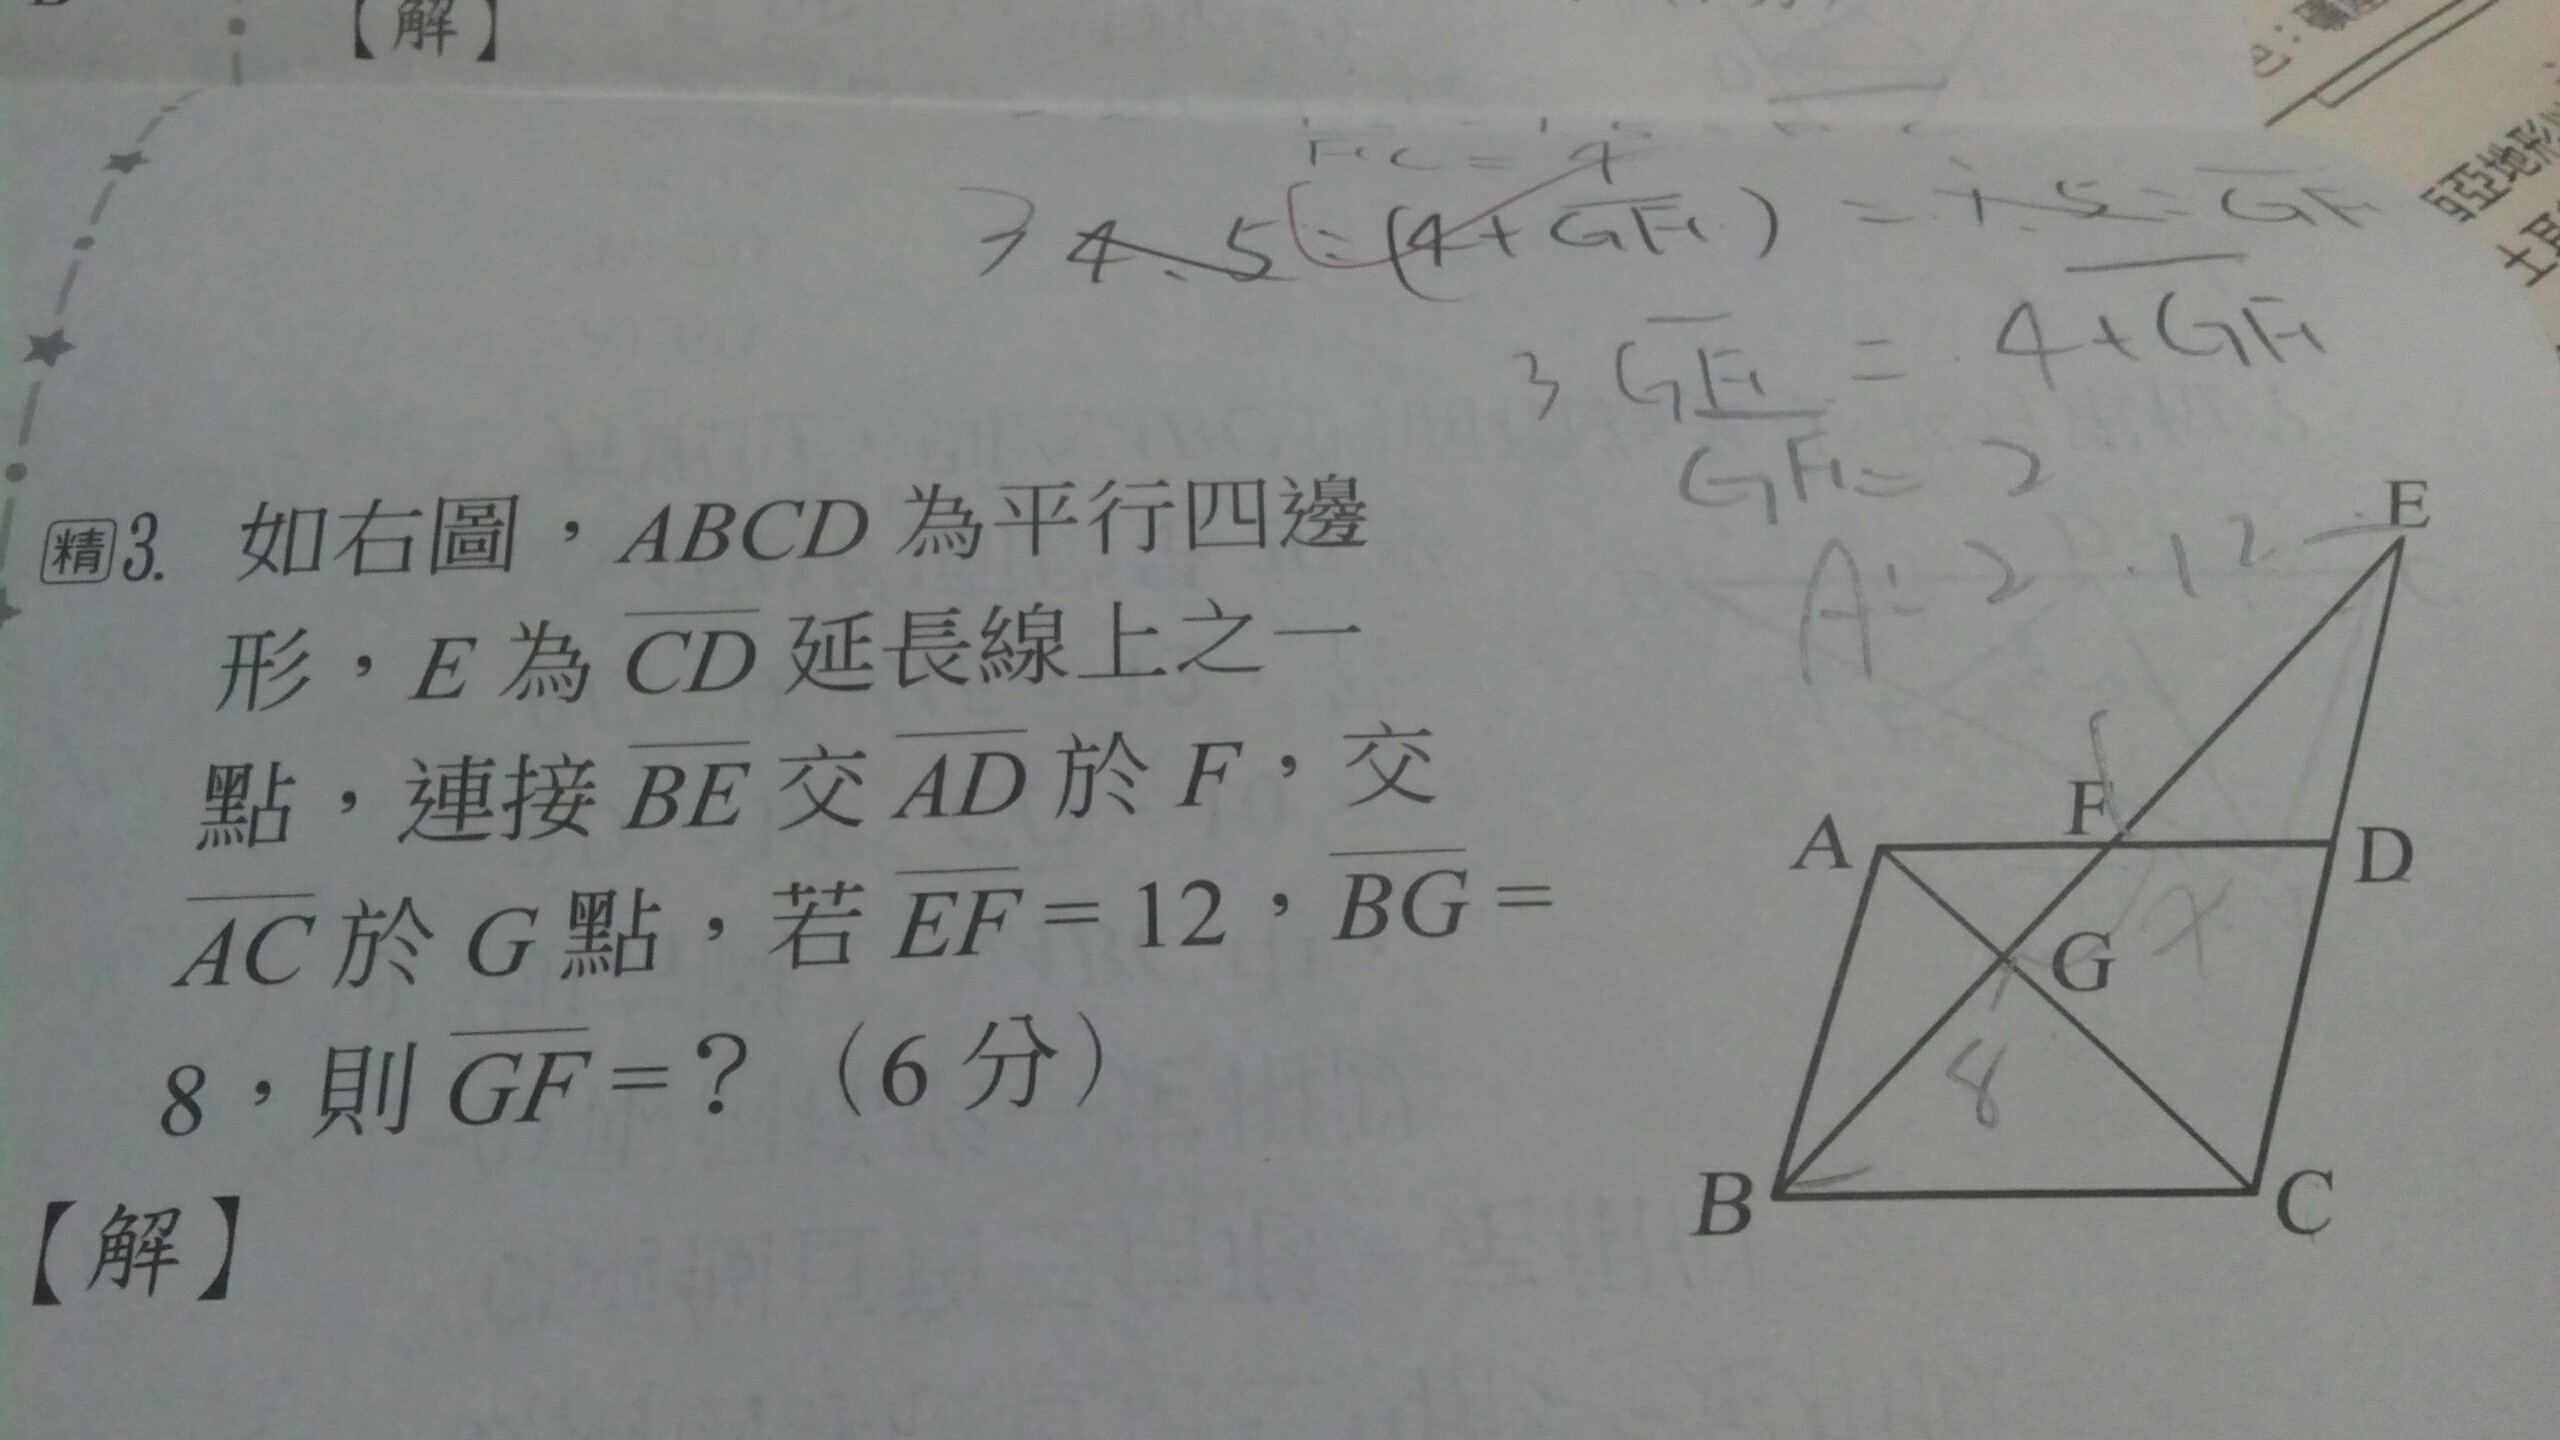 【解】
3 4.5:(4+GF) = 1.5:GF
3 GF = 4+GF
GF = 2
A: 2
12
精 3. 如右圖，ABCD 為平行四邊
形，E 為 CD 延長線上之一
點，連接 BE 交 AD 於 F，交
AC 於 G 點，若 EF = 12，BG =
8，則 GF = ？（6 分）
【解】
E
F
A
D
x
G
8
B
C
亞地形